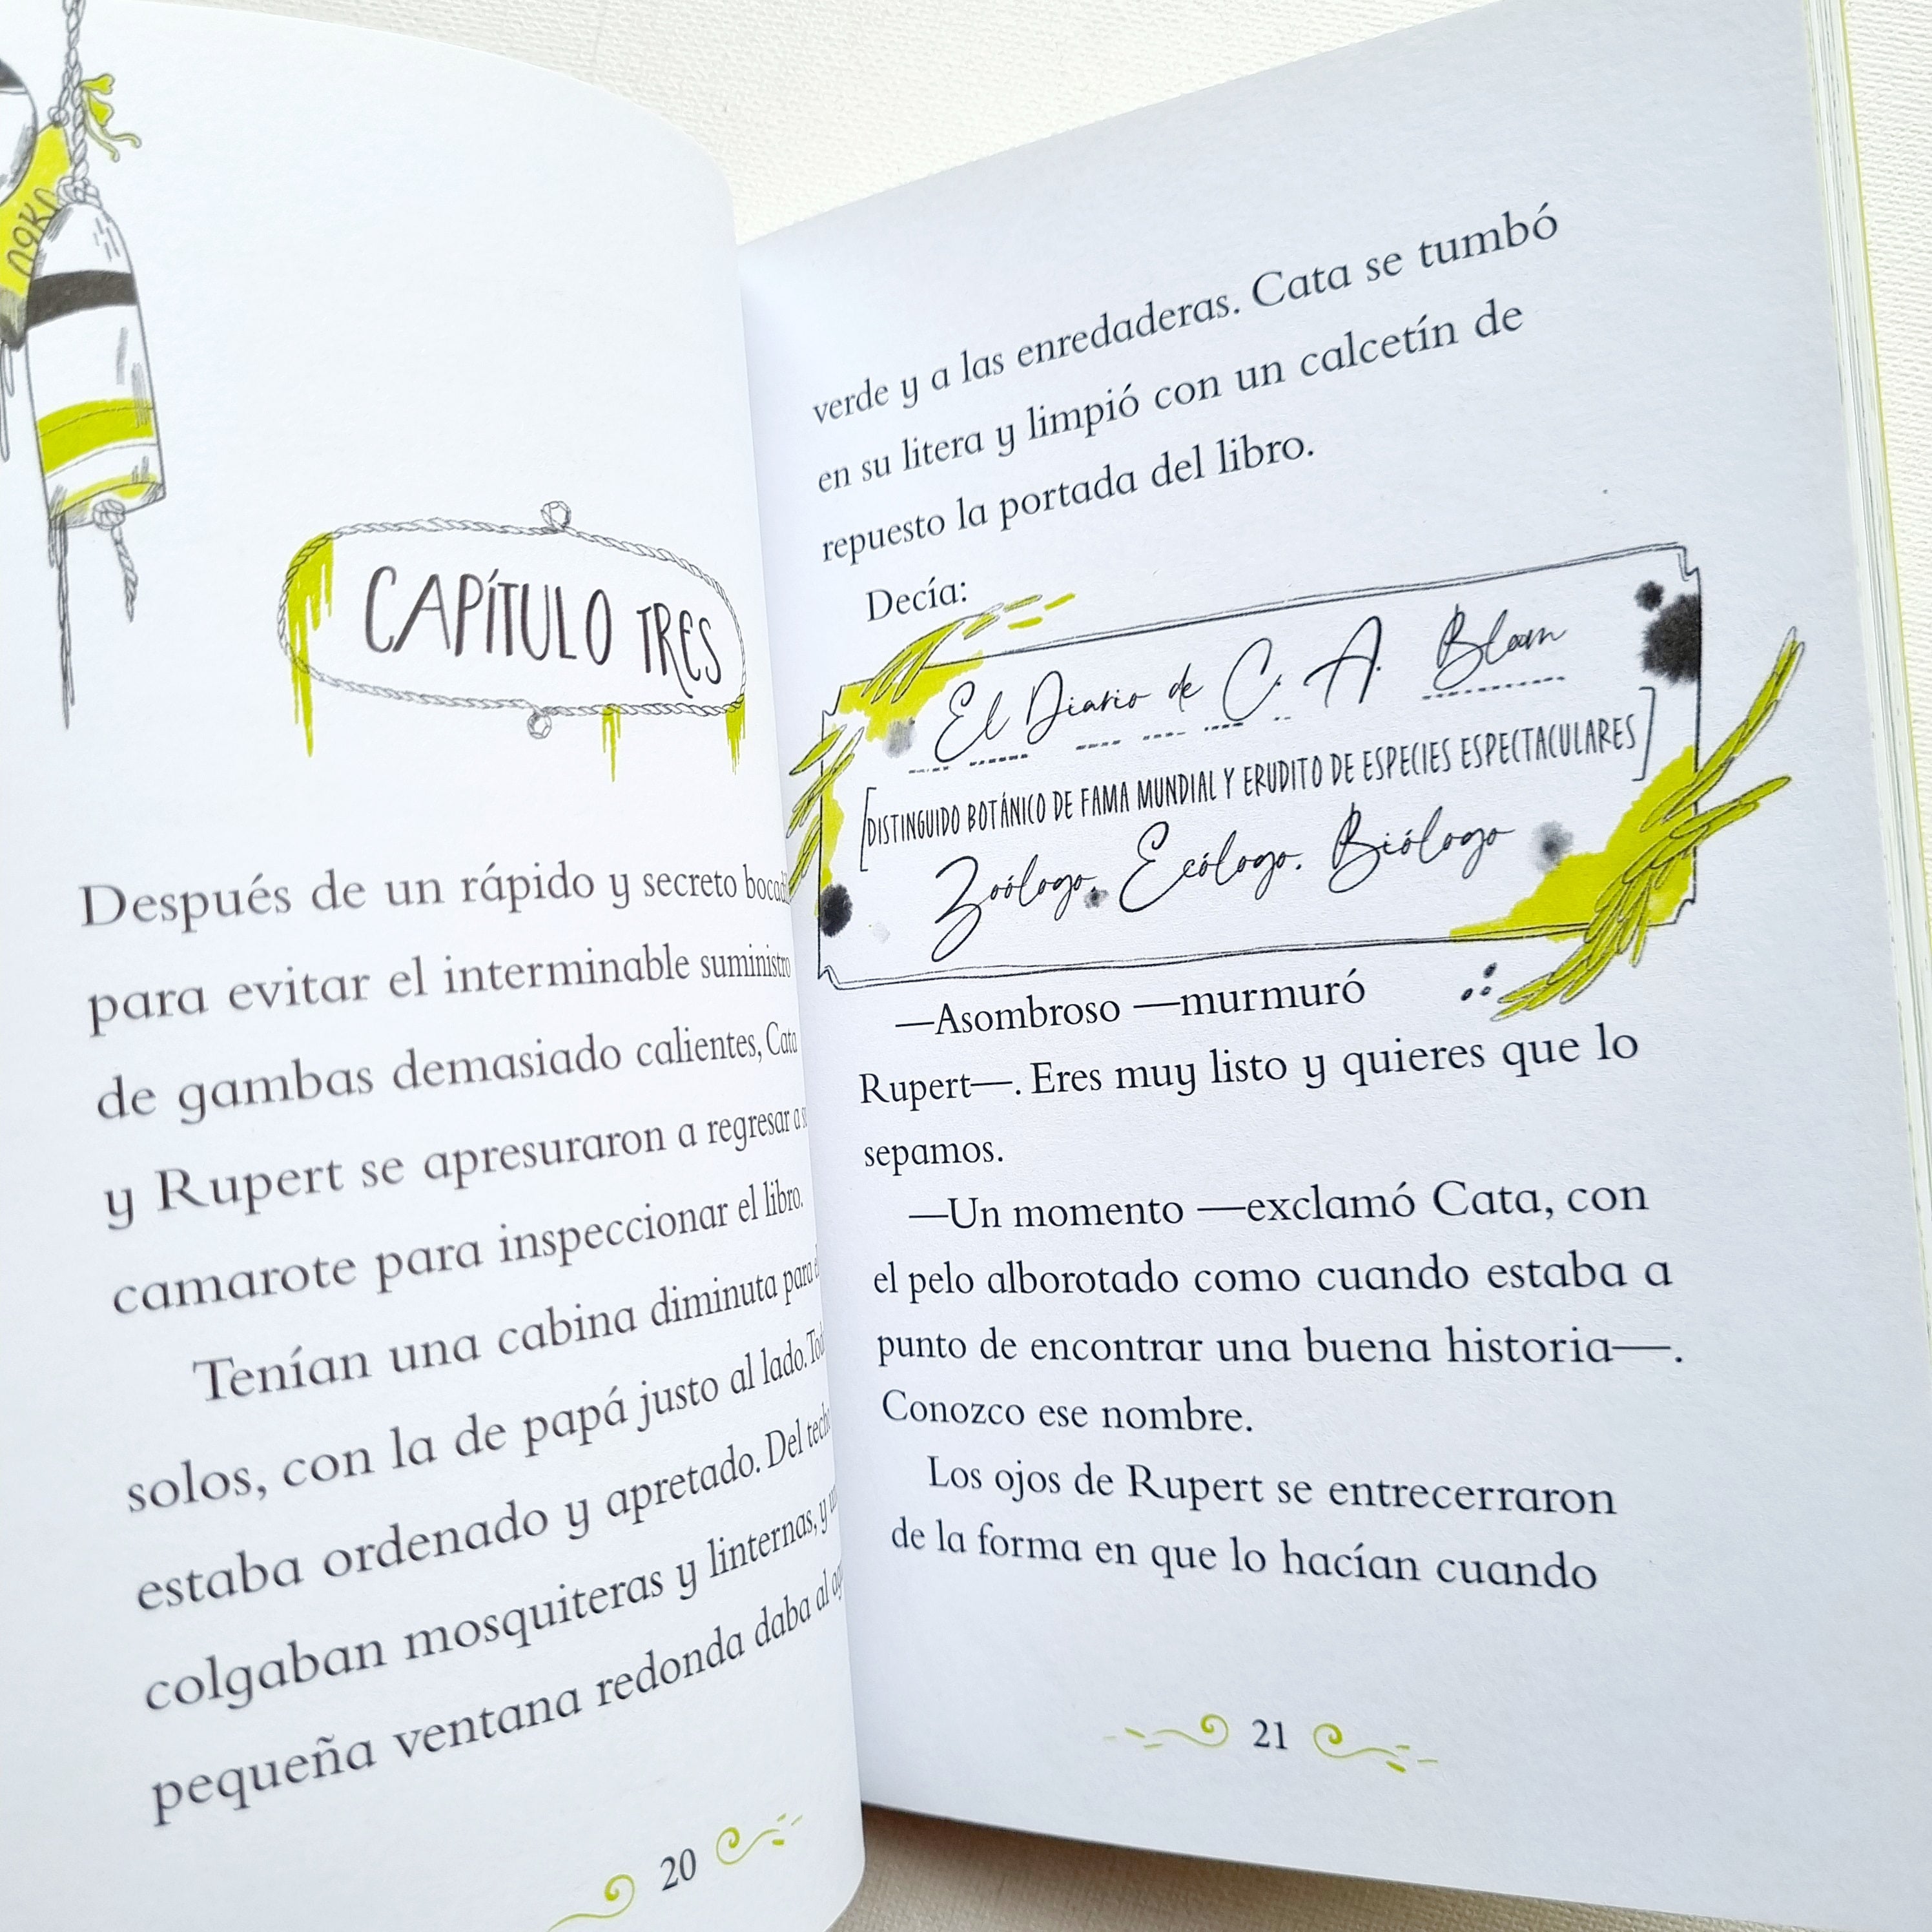 CAPÍTULO TRES
Después de un rápido y secreto
para evitar el interminable suministro
de gambas demasiado calientes, Cata
y Rupert se apresuraron a regresar a
camarote para inspeccionar el libro.
Tenían una cabina diminuta para
solos, con la de papá justo al lado.
estaba ordenado y apretado. Del
colgaban mosquiteras y linternas, y
pequeña ventana redonda daba al
20
verde y a las enredaderas. Cata se tumbó
en su litera y limpió con un calcetín de
repuesto la portada del libro.
Decía:
El Diario de C. A. Bloom
[DISTINGUIDO BOTÁNICO DE FAMA MUNDIAL Y ERUDITO DE ESPECIES ESPECTACULARES]
Zoólogo. Ecólogo. Biólogo
—Asombroso —murmuró
Rupert—. Eres muy listo y quieres que lo
sepamos.
—Un momento —exclamó Cata, con
el pelo alborotado como cuando estaba a
punto de encontrar una buena historia—.
Conozco ese nombre.
Los ojos de Rupert se entrecerraron
de la forma en que lo hacían cuando
21